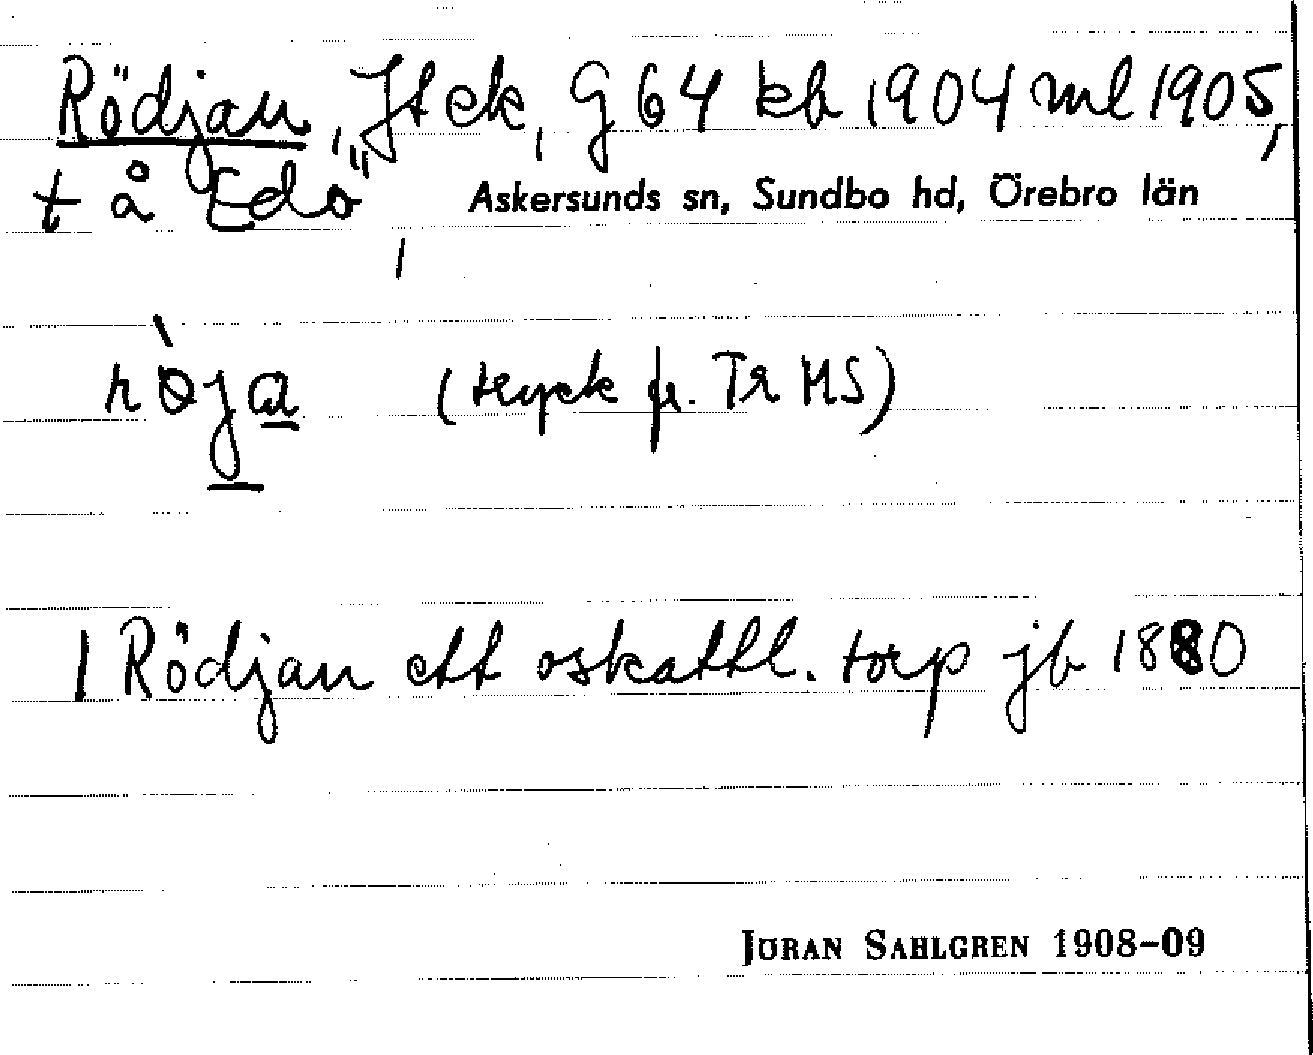 Rödjan, "Jt ek, G 64 kb 1904 ml 1905,
t å Edö", Askersunds sn, Sundbo hd, Örebro län
rò̀ja (tryck fr. Tr MS)
1 Rödjan ett oskattl. torp jb 1880
JÖRAN SAHLGREN 1908-09